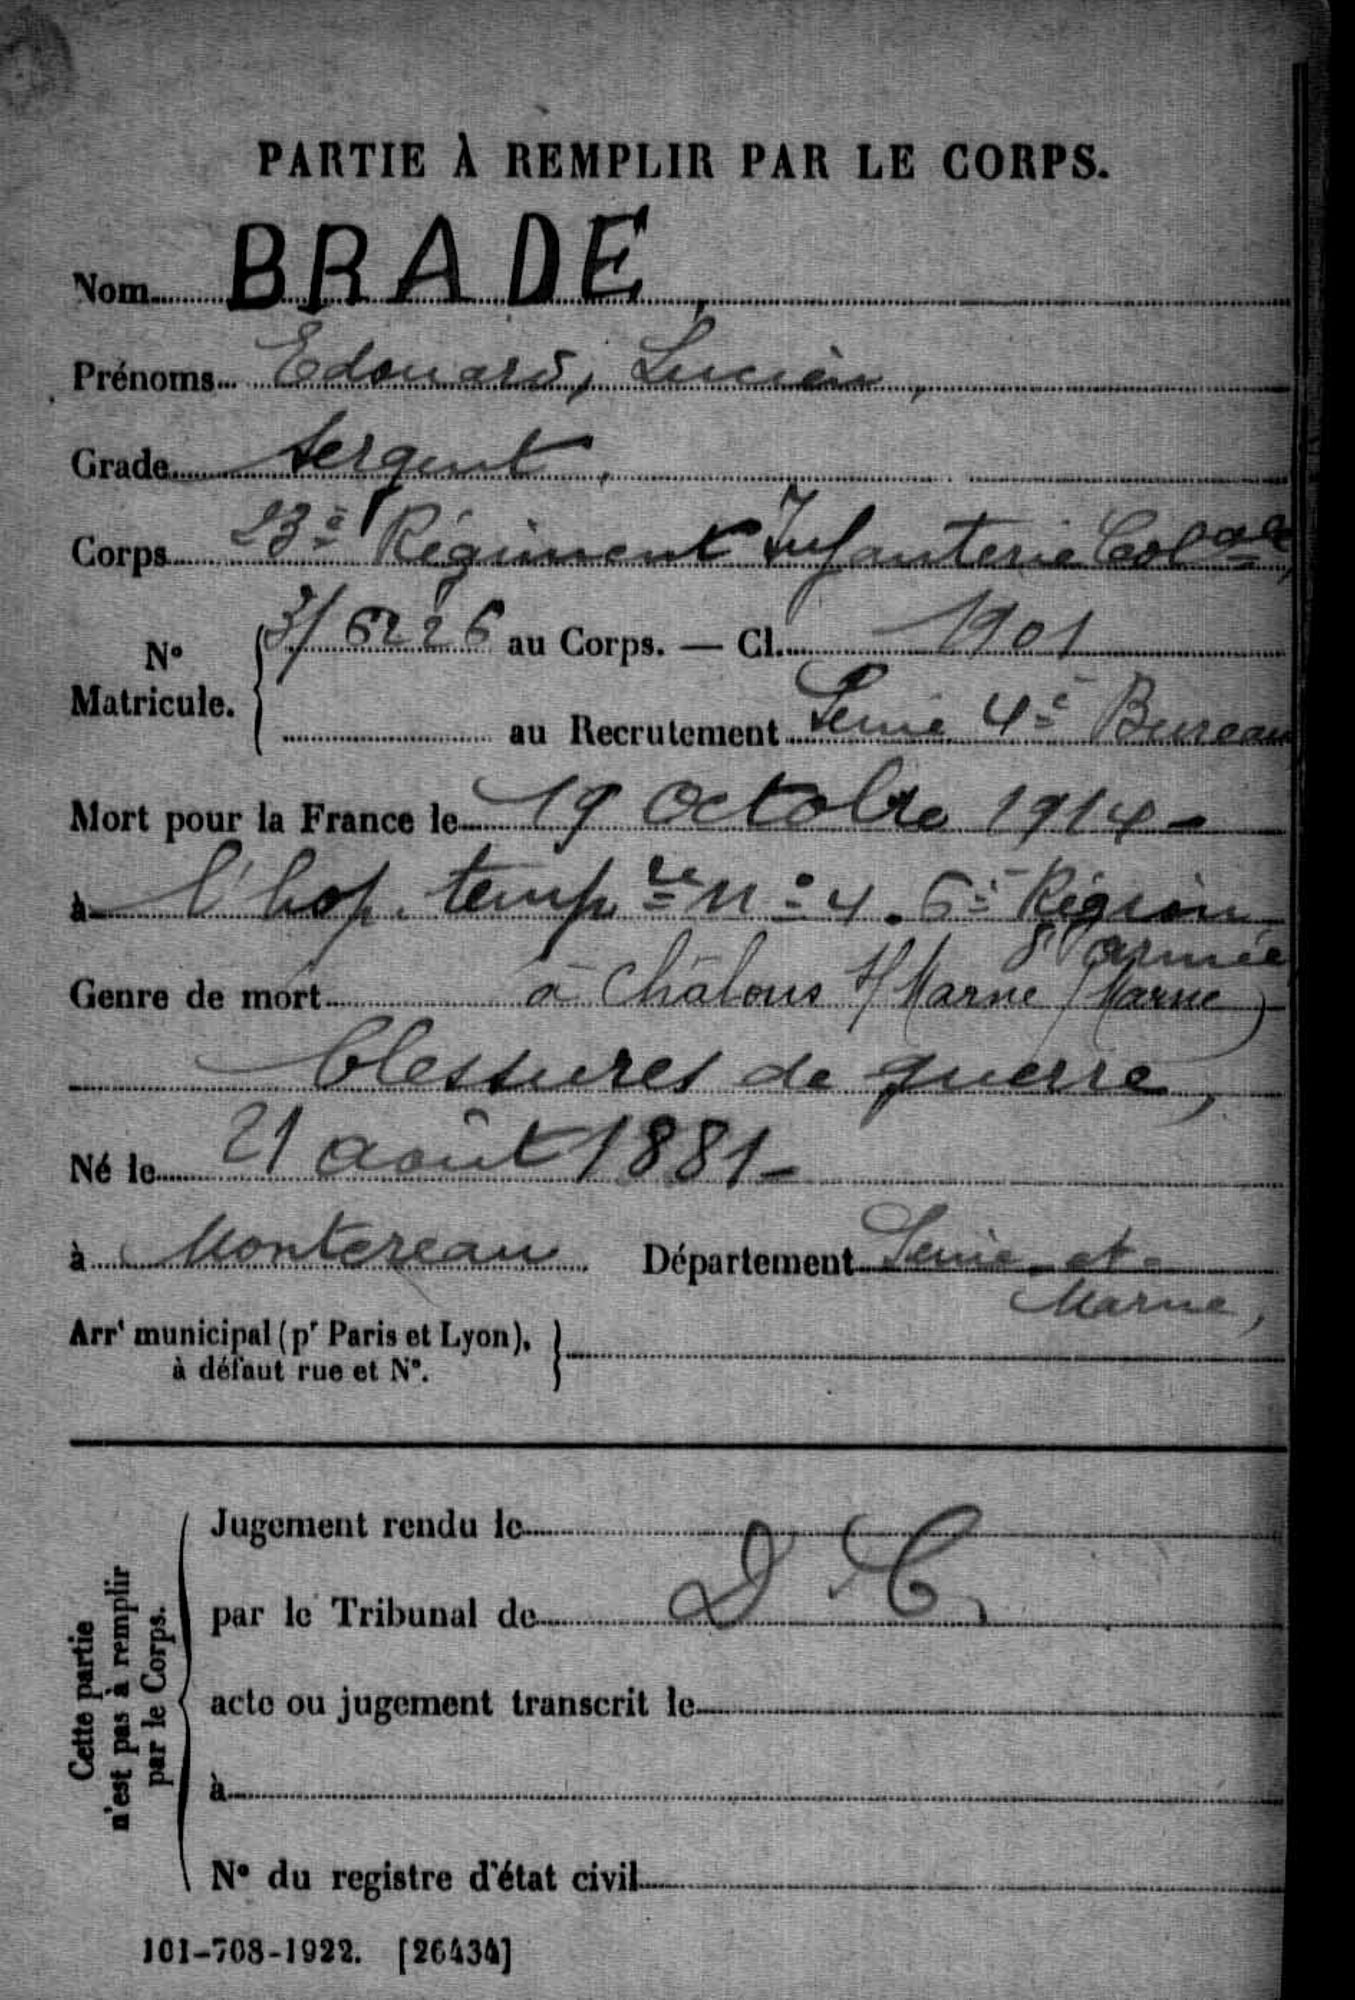 PARTIE À REMPLIR PAR LE CORPS.
Nom BRADE,
Prénoms Edouard, Lucien,
Grade Sergent,
Corps 23e Régiment Infanterie Colale,
N° Matricule. 3/6226 au Corps. — Cl. 1901
au Recrutement Seine 4e Bureau
Mort pour la France le 19 Octobre 1914 -
à l'hop. tempre n° 4. 6e Région
armée
Genre de mort à Châlons s/Marne (Marne)
blessures de guerre,
Né le 21 août 1881 -
à Montereau Département Seine-et-
Marne,
Arrt municipal (pr Paris et Lyon),
à défaut rue et N°.
Cette partie
n'est pas à remplir
par le Corps.
Jugement rendu le
par le Tribunal de D C,
acte ou jugement transcrit le
à
N° du registre d'état civil
101-708-1922. [26434]